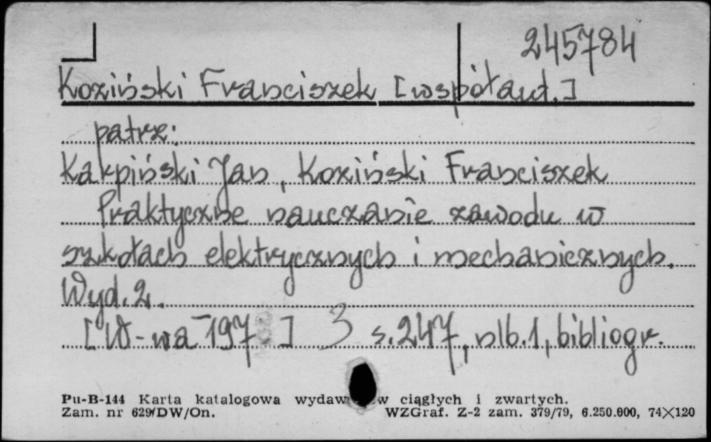 245784
Koziński Franciszek [współaut.]
patrz:
Karpiński Jan, Koziński Franciszek
Praktyczne nauczanie zawodu w
szkołach elektrycznych i mechanicznych.
Wyd. 2.
[W-wa 197 ] 3 s. 247, nlb. 1, bibliogr.
Pu-B-144 Karta katalogowa ciągłych i zwartych.
Zam. nr 629/DW/On. WZGraf. Z-2 zam. 379/79, 6.250.000, 74×120